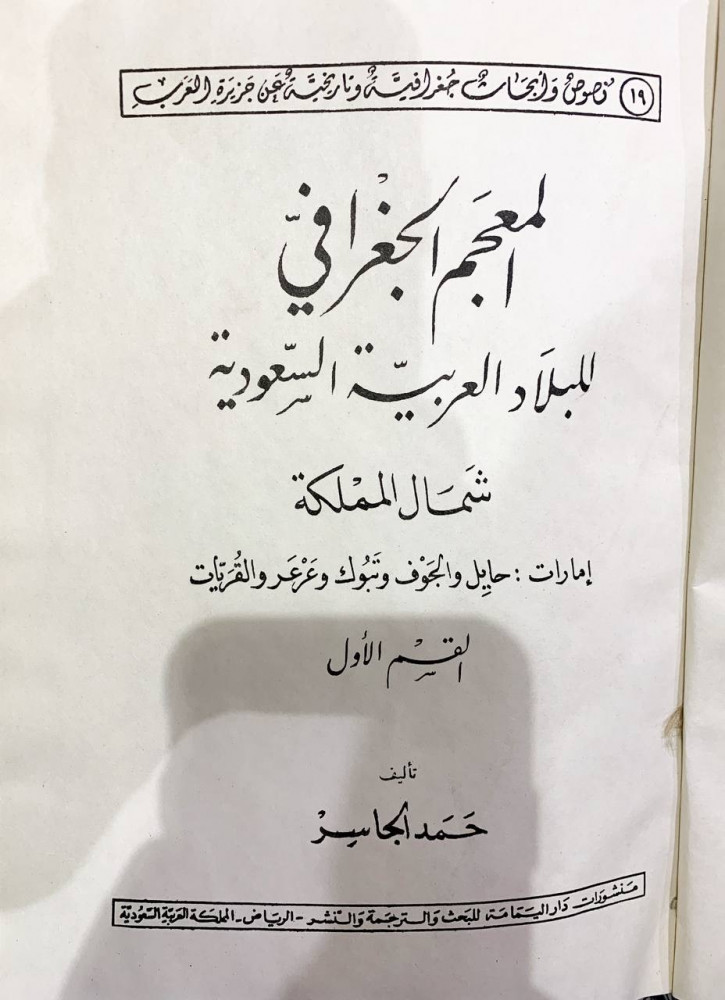 ١٩ نصوص وأبحاث جغرافية وتاريخية عن جزيرة العرب
المعجم الجغرافي
للبلاد العربية السعودية
شمال المملكة
إمارات : حايل والجوف وتبوك وعرعر والقريات
القسم الأول
تأليف
حمد الجاسر
منشورات دار اليمامة للبحث والترجمة والنشر - الرياض - المملكة العربية السعودية